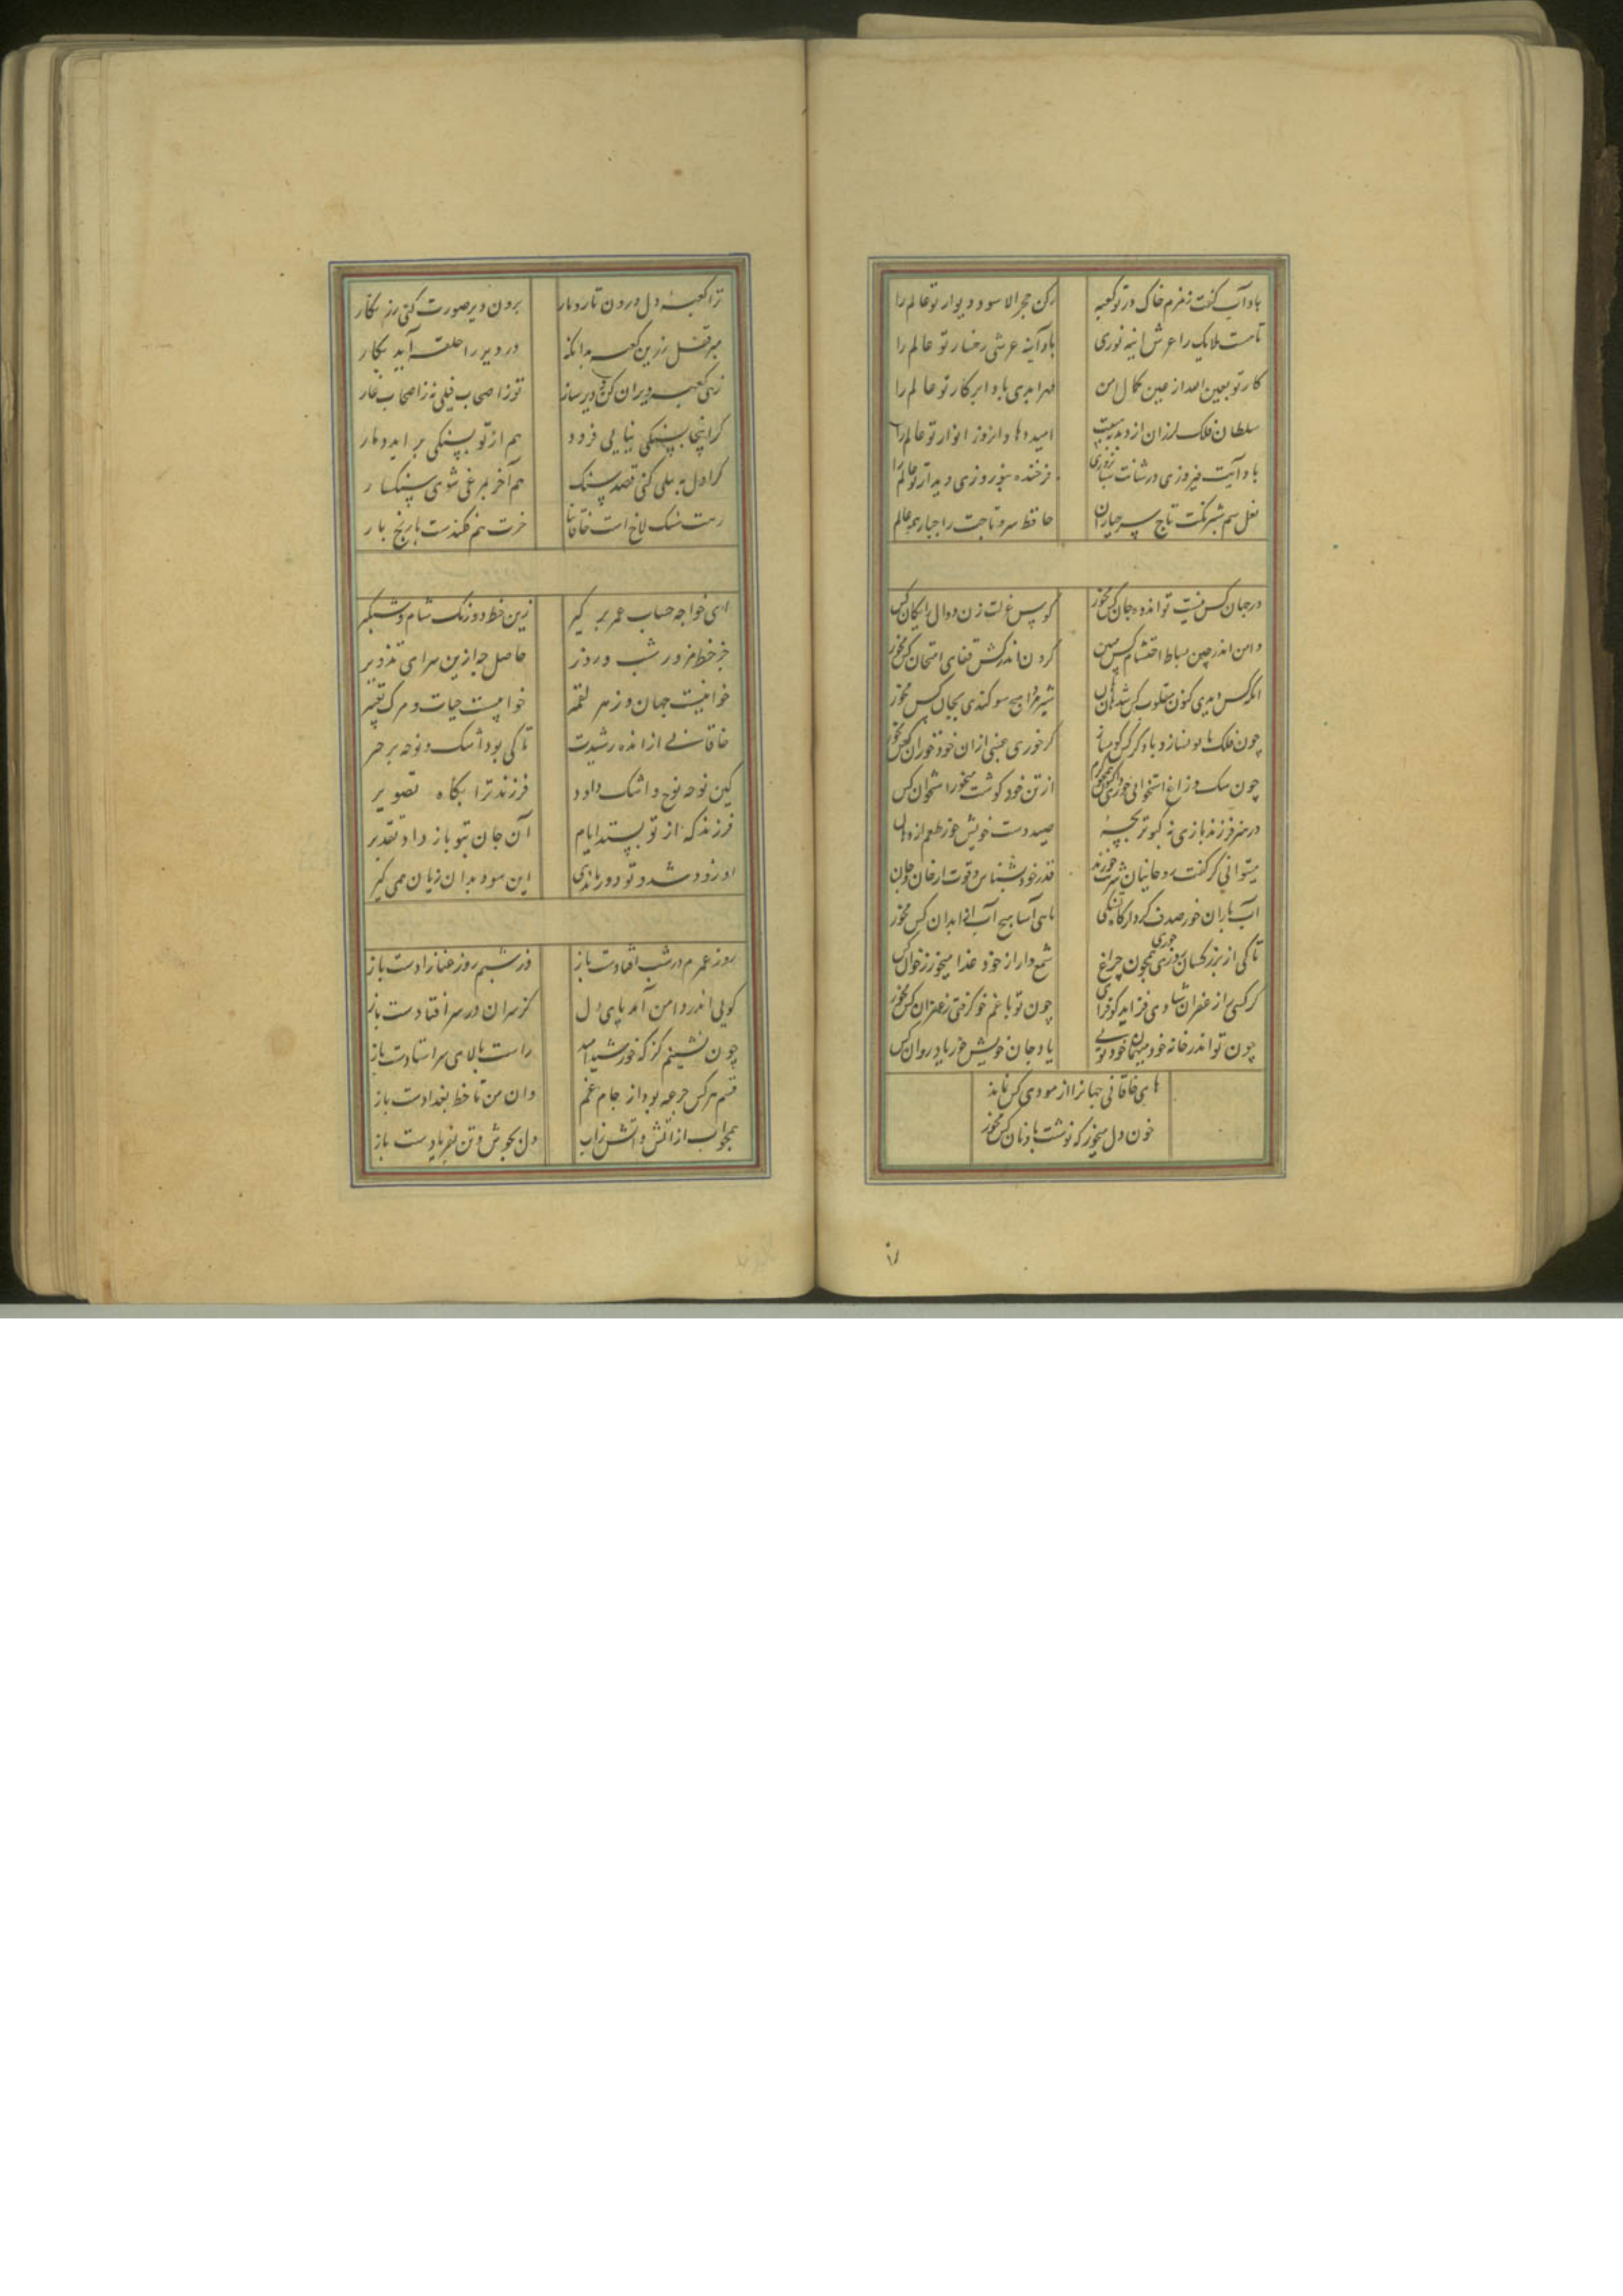 باد آب کفت زمزم خاک در تو کعبه رکن حجر الاسود دیوار تو عالم را
تا هست ملایک را عرش آینه نوری باد آینه عرشی رخسار تو عالم را
کار تو بعین الله از عین کمال امن مهر ابدی باد ابر کار تو عالم را
سلطان فلک لرزان از دبدبه هیبت امید دها و از وز انوار تو عالم را
باد آیت فیروزی در شانت فرخنده بنوروزی دیدار تو عالم را
نعل سم شبرنکت تاج سر جباران حافظ سر و تاجت را جبار همه عالم
در جهان کس نیست تو اندوه جان کس مخور کوس عزلت زن دوال رایکان کس
دامن اندر چین بساط احتشام کس مبین کردن اندر کش قفای امتحان کس مخور
انکه کس دیدی کنون مقلوب کس شد شیر مردا هیچ سوکندی بجان کس مخور
چون فلک با تو نسازد باد کر کس کو مساز کر خوری عیبی از ان خود خور ان کس مخور
چون سک و زاغ استخوانی خوری از تن خود کوشت میخور استخوان کس
در هنر فرزند بازی نه کبوتر بچه صید دست خویش خور طعم از دهان
میتوانی کر کفت روحانیان شربت خورند قدر خود بشناس و قوت از خان و جان
آب باران خور صدف کردار کاه تشنکی ماهی آسا هیچ آب از ابدان کس مخور
تا کی از بزر کسان روزی خوری همچون چراغ شمع دار از خود غذا میخور ز خوان کس
کر کسی را زعفران شادی فزاید کو فزای چون تو با غم خو کرفتی زعفران کس مخور
چون تو اندر خانه خود میهمان خودنه یی باد جان خویش خور باد روان کس
های خاقانی جهانرا از مودی کس نماند
خون دل میخور که نوشت باد نان کس مخور
ترا کعبهٔ دل درون تار و مار برون دیر صورت کنی زر نکار
مبر قفل زرین کعبه بدانکه در دیر را حلقه آید بکار
زهی کعبه ویران کن و دیر ساز تو ز اصحاب فیلی نه ز اصحاب غار
کر اینجا بسنکی بنایی فزود هم از تو بسنکی بر اید دمار
کر اول به پیلی کنی قصد سنک هم آخر بمرغی شوی سنکسار
رهت سنک لاخ است خاقانیا خرت هم کندست با رنج بار
ای خواجه حساب عمر بر کیر زین خط دو رنک شام و شبکیر
جز خط مزور شب و روز حاصل چه ازین سرای تزویر
خوانیست جهان و زهر لقمه خوابیست حیات و مرک تعبیر
خاقانی از انده رشیدت تا کی بود اشک و نوحه بر خیر
کین نوحه نوح و اشک داود فرزند ترا بکاه تصویر
فرزند که از تو بستد ایام آن جان بتو باز داد تقدیر
او زود شد و تو دور ماندی این سود بدان زیان همی کیر
روز عمرم در شب افتادت باز وز شبم روز عنا زادست باز
کویی اندر دامن آمد پای دل کز سران در سر افتادست باز
چون نشینم کژ که خورشید امید راست بالای سر استادست باز
قسم هر کس جرعه بود از جام غم وان من تا خط بغدادست باز
همچو آب از آتش و آتش ز آب دل بجوش و تن بفریادست باز